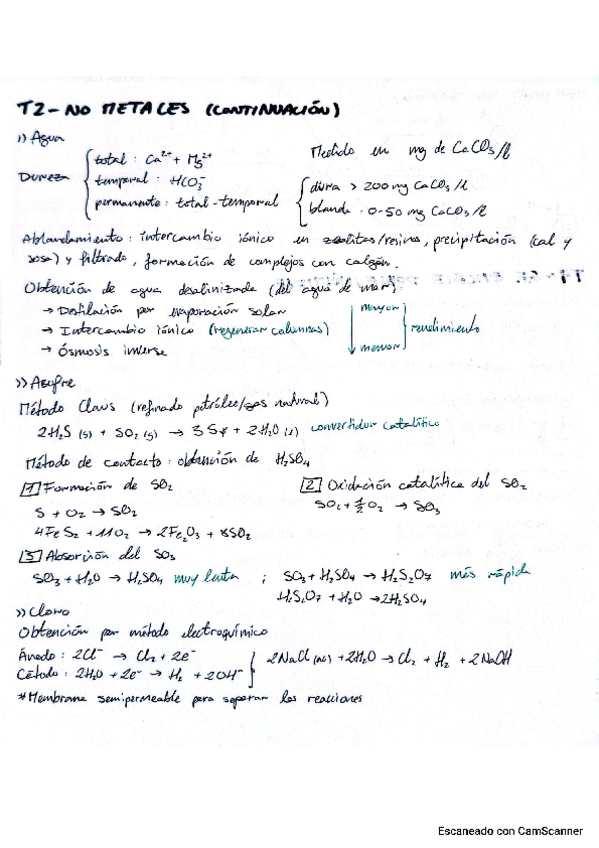 T2 - NO METALES (CONTINUACIÓN)
>> Agua
Dureza { total: Ca²⁺ + Mg²⁺
temporal: HCO₃⁻
permanente: total - temporal
Medido en mg de CaCO₃/l
{ dura > 200 mg CaCO₃/l
blanda: 0-50 mg CaCO₃/l
Ablandamiento: intercambio iónico en zeolitas/resinas, precipitación (cal y
sosa) y filtrado, formación de complejos con calgón.
Obtención de agua desalinizada (del agua de mar):
→ Destilación por evaporación solar
→ Intercambio iónico (regenerar columnas)
→ Ósmosis inversa
mayor
menor } rendimiento
>> Azufre
Método Claus (refinado petróleo/gas natural)
2H₂S (g) + SO₂ (g) → 3S + 2H₂O (l) convertidor catalítico
Método de contacto: obtención de H₂SO₄
[1] Formación de SO₂
S + O₂ → SO₂
4FeS₂ + 11O₂ → 2Fe₂O₃ + 8SO₂
[2] Oxidación catalítica del SO₂
SO₂ + ½O₂ → SO₃
[3] Absorción del SO₃
SO₃ + H₂O → H₂SO₄ muy lenta ; SO₃ + H₂SO₄ → H₂S₂O₇ más rápida
H₂S₂O₇ + H₂O → 2H₂SO₄
>> Cloro
Obtención por método electroquímico
Ánodo: 2Cl⁻ → Cl₂ + 2e⁻
Cátodo: 2H₂O + 2e⁻ → H₂ + 2OH⁻
} 2NaCl (ac) + 2H₂O → Cl₂ + H₂ + 2NaOH
*Membrana semipermeable para separar las reacciones
Escaneado con CamScanner